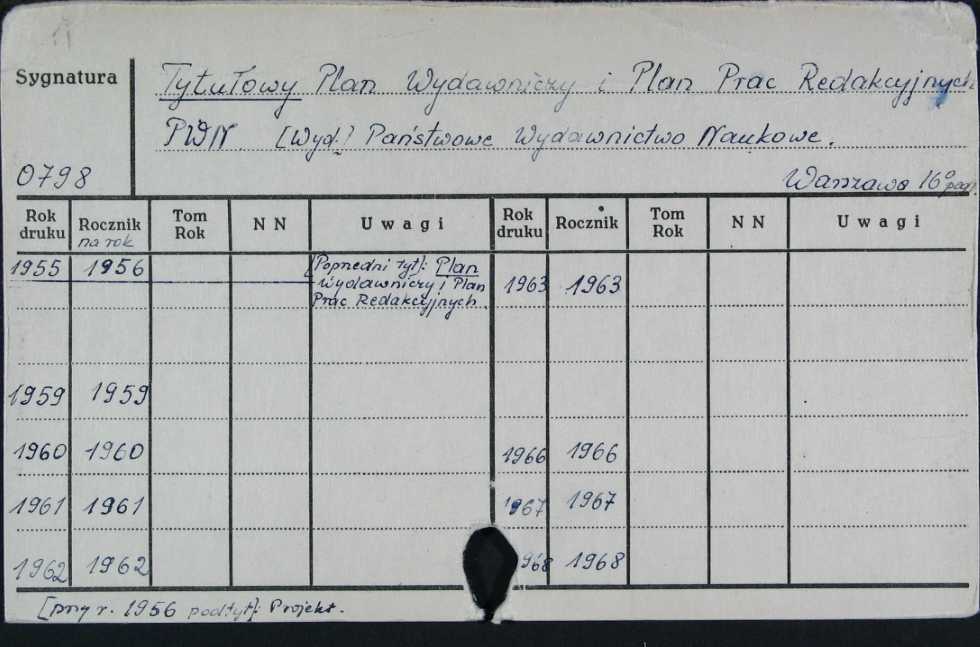 Sygnatura
Tytułowy Plan Wydawniczy i Plan Prac Redakcyjnych
PWN. [Wyd.] Państwowe Wydawnictwo Naukowe.
0798
Warszawa 16°
Rok druku Rocznik na rok Tom Rok NN Uwagi Rok druku Rocznik Tom Rok NN Uwagi
1955 1956 [Poprzedni tyt]: Plan
Wydawniczy i Plan
Prac Redakcyjnych.
1963 1963
1959 1959
1960 1960 1966 1966
1961 1961 1967 1967
1962 1962 1968 1968
[przy r. 1956 podtyt]: Projekt.